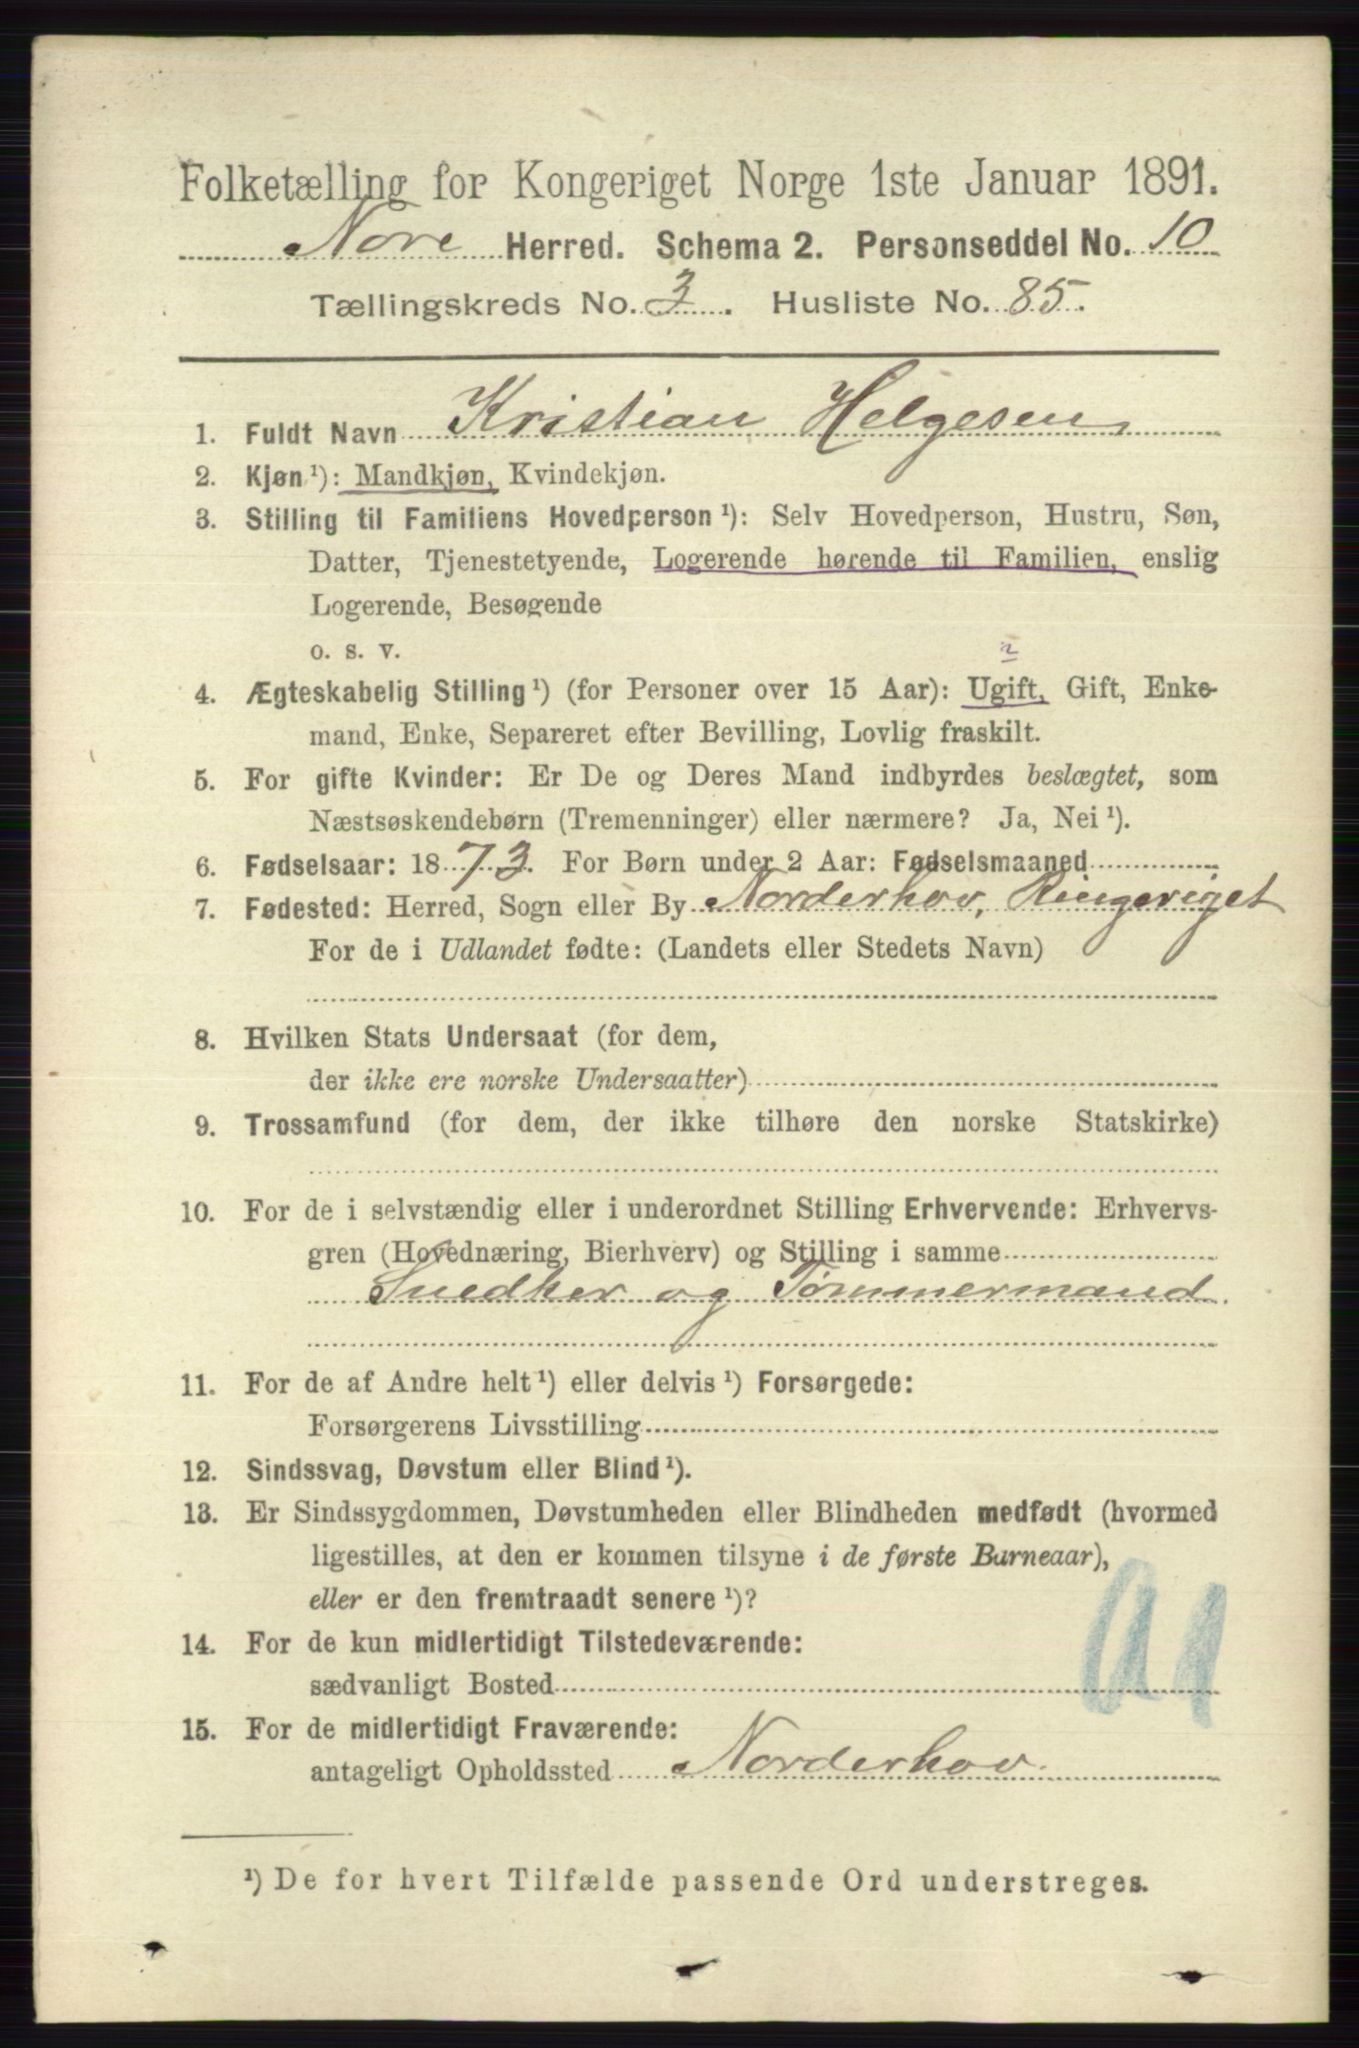 Folketælling for Kongeriget Norge 1ste Januar 1891.
Nore Herred. Schema 2. Personseddel No. 10
Tællingskreds No. 3. Husliste No. 85.
1. Fuldt Navn Kristian Helgesen,
2. Kjøn ¹): Mandkjøn, Kvindekjøn.
3. Stilling til Familiens Hovedperson ¹): Selv Hovedperson, Hustru, Søn,
Datter, Tjenestetyende, Logerende hørende til Familien, enslig
Logerende, Besøgende
o. s. v.
4. Ægteskabelig Stilling ¹) (for Personer over 15 Aar): Ugift, Gift, Enke-
mand, Enke, Separeret efter Bevilling, Lovlig fraskilt.
5. For gifte Kvinder: Er De og Deres Mand indbyrdes beslægtet, som
Næstsøskendebørn (Tremenninger) eller nærmere? Ja, Nei ¹).
6. Fødselsaar: 1873. For Børn under 2 Aar: Fødselsmaaned
7. Fødested: Herred, Sogn eller By Norderhov, Ringeriget
For de i Udlandet fødte: (Landets eller Stedets Navn)
8. Hvilken Stats Undersaat (for dem,
der ikke ere norske Undersaatter)
9. Trossamfund (for dem, der ikke tilhøre den norske Statskirke)
10. For de i selvstændig eller i underordnet Stilling Erhvervende: Erhvervs-
gren (Hovednæring, Bierhverv) og Stilling i samme
Snedker og Tømmermand.
11. For de af Andre helt ¹) eller delvis ¹) Forsørgede:
Forsørgerens Livsstilling
12. Sindssvag, Døvstum eller Blind ¹).
13. Er Sindssygdommen, Døvstumheden eller Blindheden medfødt (hvormed
ligestilles, at den er kommen tilsyne i de første Barneaar),
eller er den fremtraadt senere ¹)?
14. For de kun midlertidigt Tilstedeværende:
sædvanligt Bosted
15. For de midlertidigt Fraværende:
antageligt Opholdssted Norderhov.
¹) De for hvert Tilfælde passende Ord understreges.